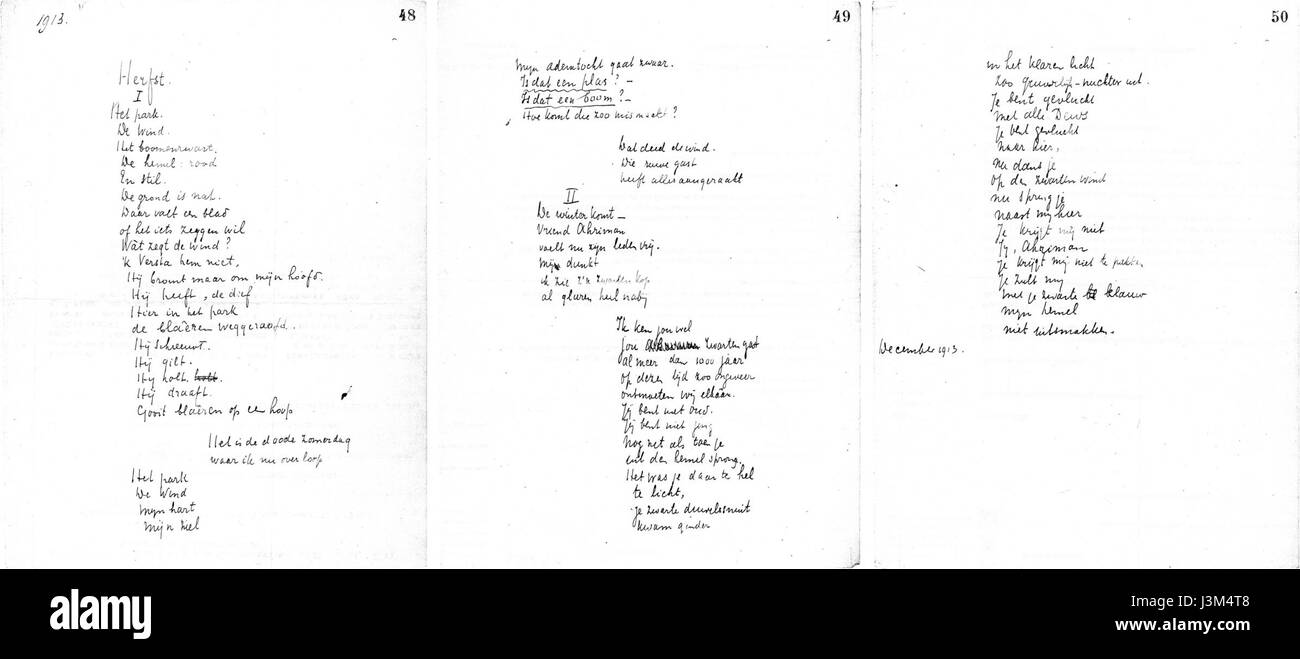 1913.
48
Herfst.
I
Het park.
De wind.
Het boomenzwart.
De hemel: rood
En stil.
De grond is nat.
Daar valt een blad
of het iets zeggen wil
Wat zegt de wind?
'k Versta hem niet,
Hij bromt maar om mijn hoofd.
Hij heeft, de dief
Hier in het park
de blaêren weggeraafd.
Hij schreeuwt.
Hij gilt.
Hij holt. holt.
Hij draaft.
Gooit blaêren op een hoop
Het is de doode zomerdag
waar ik nu over loop
Het park
De Wind
Mijn hart
Mijn ziel
49
Mijn ademtocht gaat zwaar.
Is dat een plas? –
Is dat een boom? –
Hoe komt die zoo mismaakt?
Dat deed de wind.
Die ruwe gast
heeft alles aangeraakt
II
De winter komt –
Vriend Ahriman
voelt nu zijn leden vrij.
Mijn dunkt
ik zie z'n zwarten kop
al gluren heel nabij
Ik ken jou wel
Jou zwarten gast
al meer dan 1000 jaar
op dezen tijd zoo ongeveer
ontmoeten wij elkaar.
Jij bent niet oud.
Jij bent niet jong
nog net als toen je
uit den hemel sprong.
Het was je daar te hel
te licht,
je zwarte duivelssnuit
kwam ginder
50
in het klaren licht
zoo gruwelijk-nuchter uit.
Je bent gevlucht
met alle Dews
je bent gevlucht
naar hier,
nu dans je
op den zwarten wind
nu spring je
naast mij hier
Je krijgt mij niet
Jij, Ahriman
je krijgt mij niet te pakken
je zult mij
met je zwarte klauw
mijn hemel
niet uitsmakken.
December 1913.
alamy
Image ID: J3M4T8
www.alamy.com